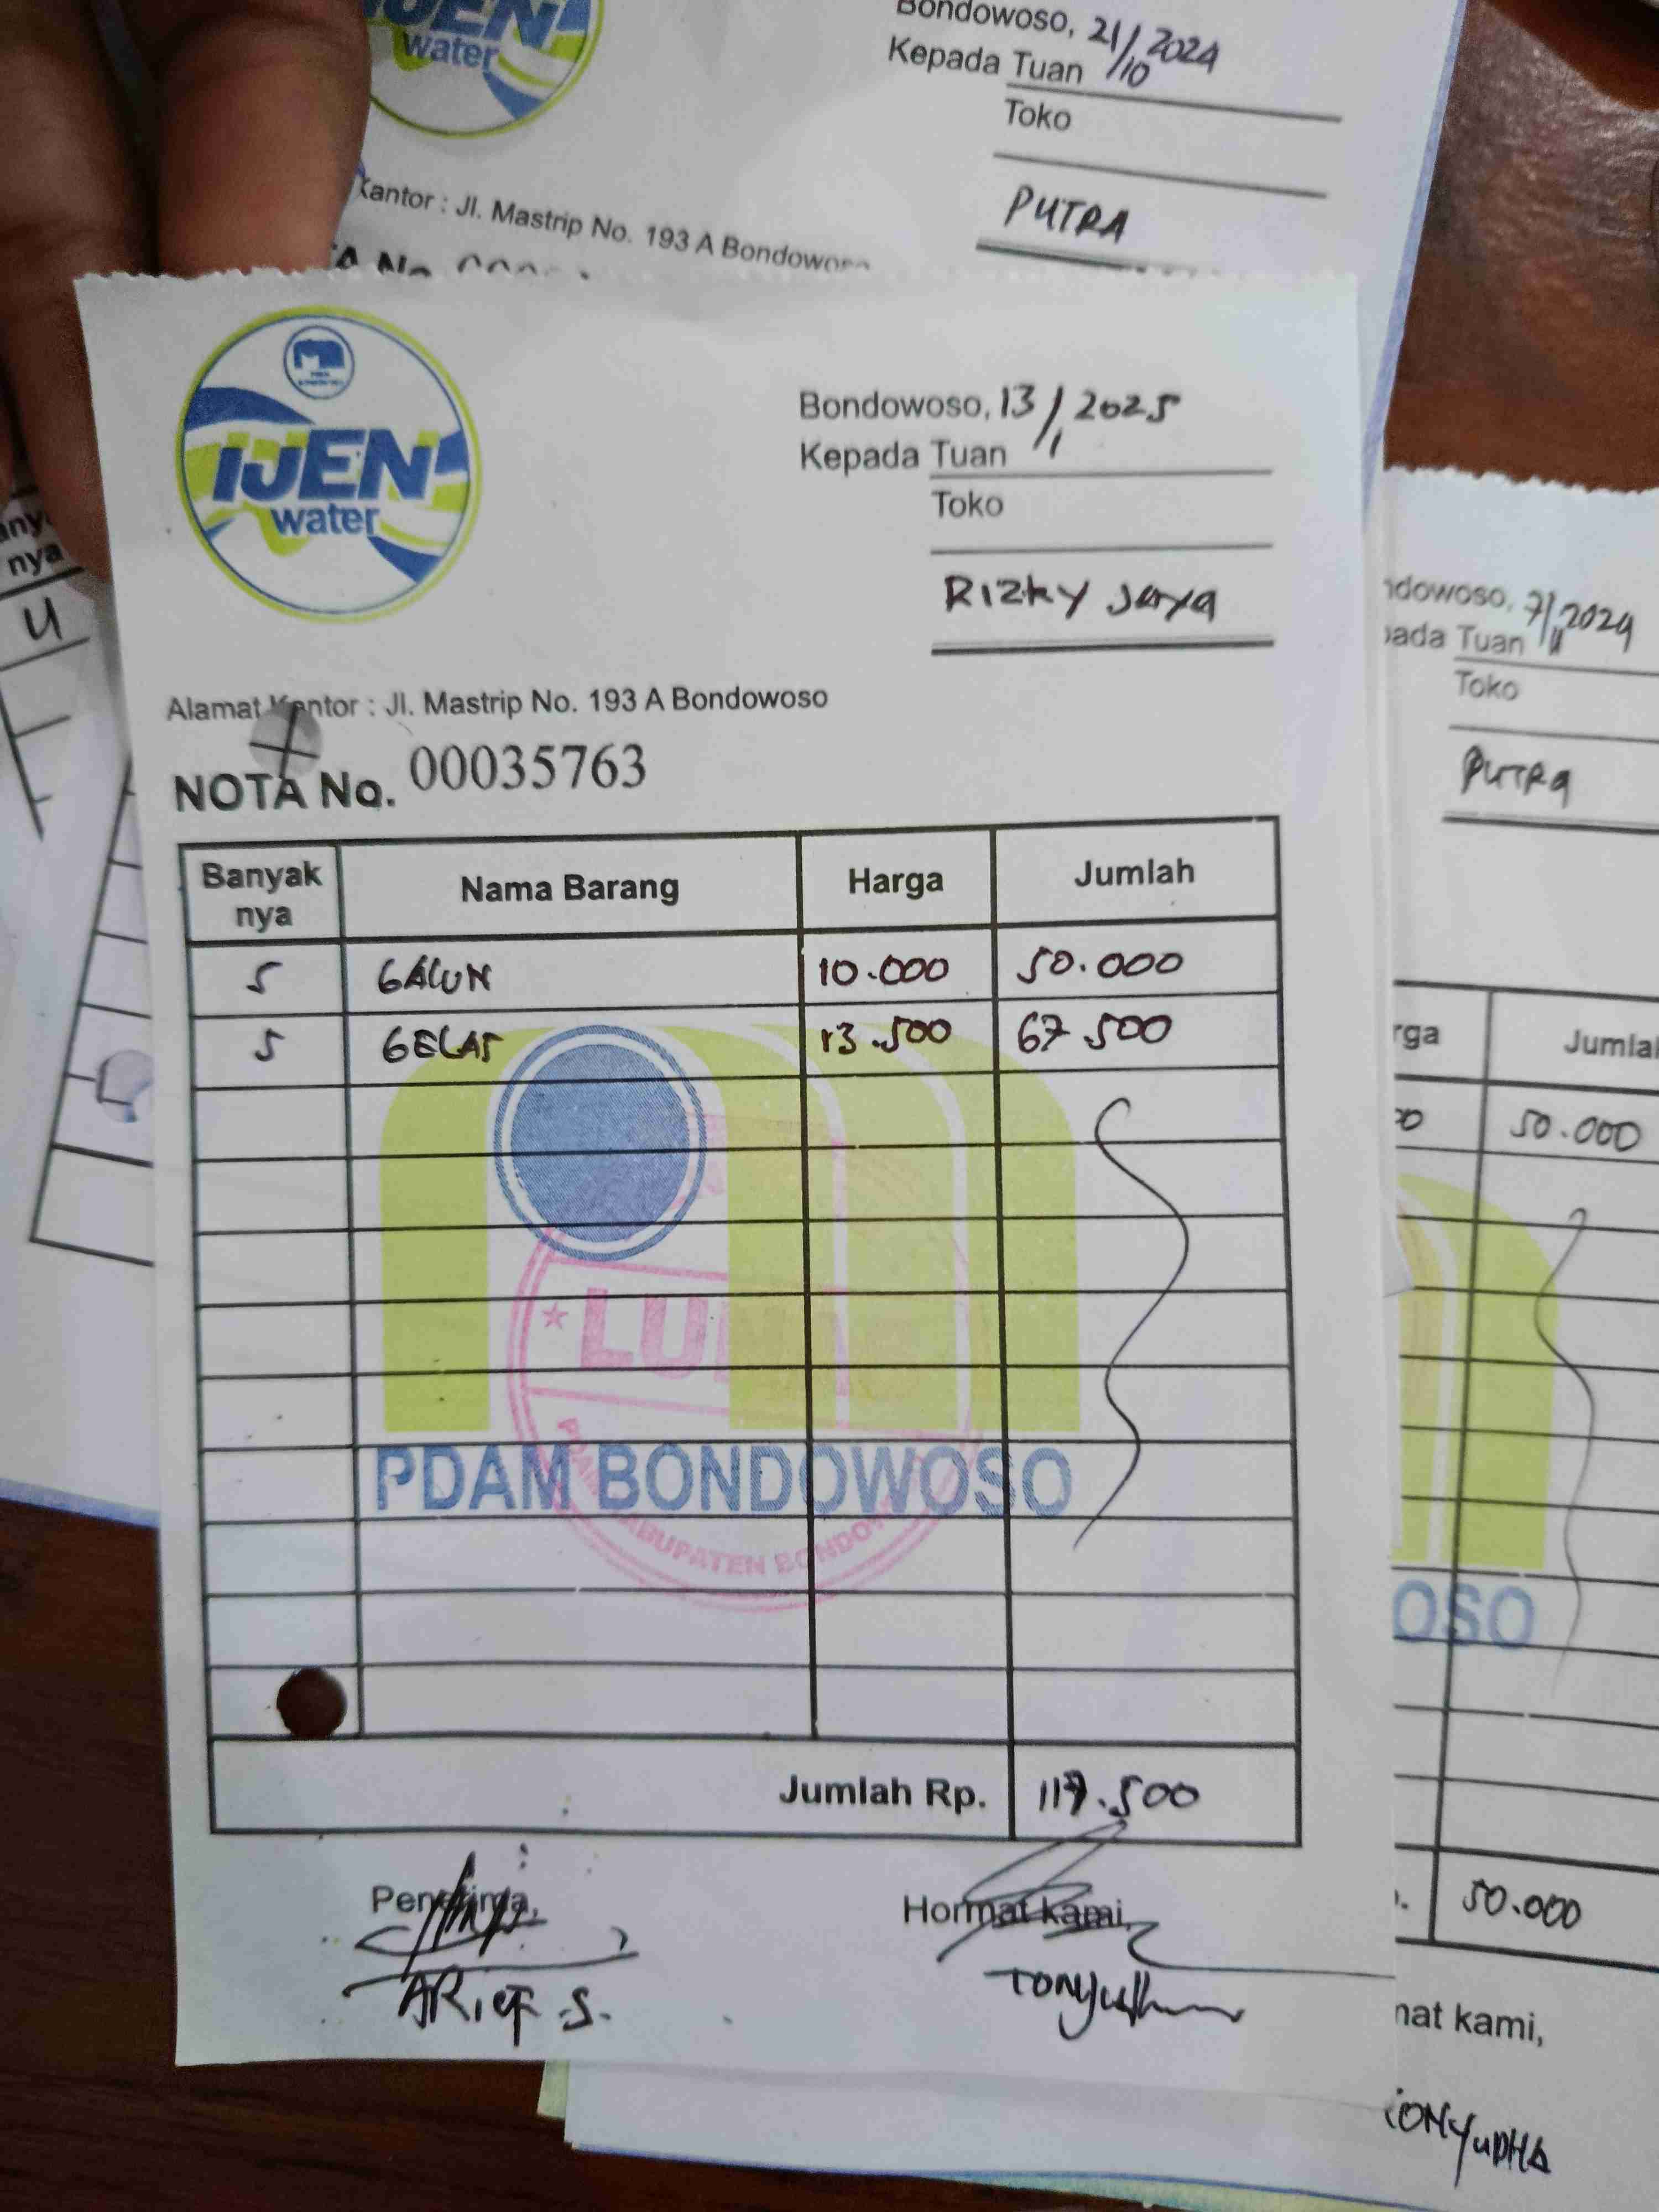 IJEN
water
Bondowoso, 21/10 2024
Kepada Tuan
Toko
PUTRA
Kantor : Jl. Mastrip No. 193 A Bondowoso
IJEN
water
Bondowoso, 13/1 2025
Kepada Tuan
Toko
Rizky Jaya
Alamat Kantor : Jl. Mastrip No. 193 A Bondowoso
NOTA No. 00035763
Banyak nya Nama Barang Harga Jumlah
5 GALUN 10.000 50.000
5 GELAS 13.500 67.500
LUNAS
PDAM BONDOWOSO
PDAM KABUPATEN BONDOWOSO
Jumlah Rp. 117.500
Penerima, Hormat kami,
ARIEF .S. TONYudha
nya
4
dowoso, 7/11 2024
ada Tuan
Toko
PUTRA
rga Jumla
50.000
OSO
50.000
mat kami,
TONYuDHA